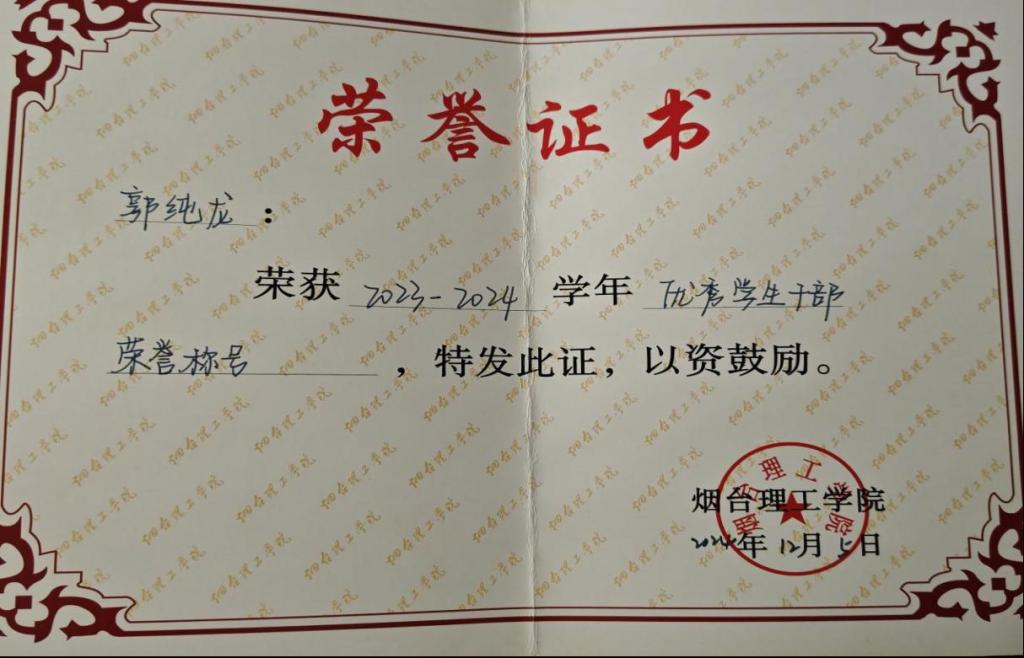 荣誉证书
郭纯龙：
荣获 2023-2024 学年 优秀学生干部
荣誉称号，特发此证，以资鼓励。
烟台理工学院
2024年12月5日